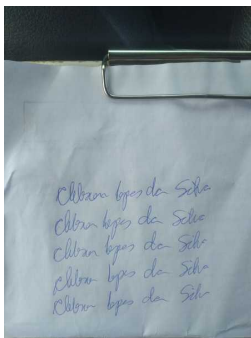 Clebson lopes da Silva
Clebson lopes da Silva
Clebson lopes da Silva
Clebson lopes da Silva
Clebson lopes da Silva